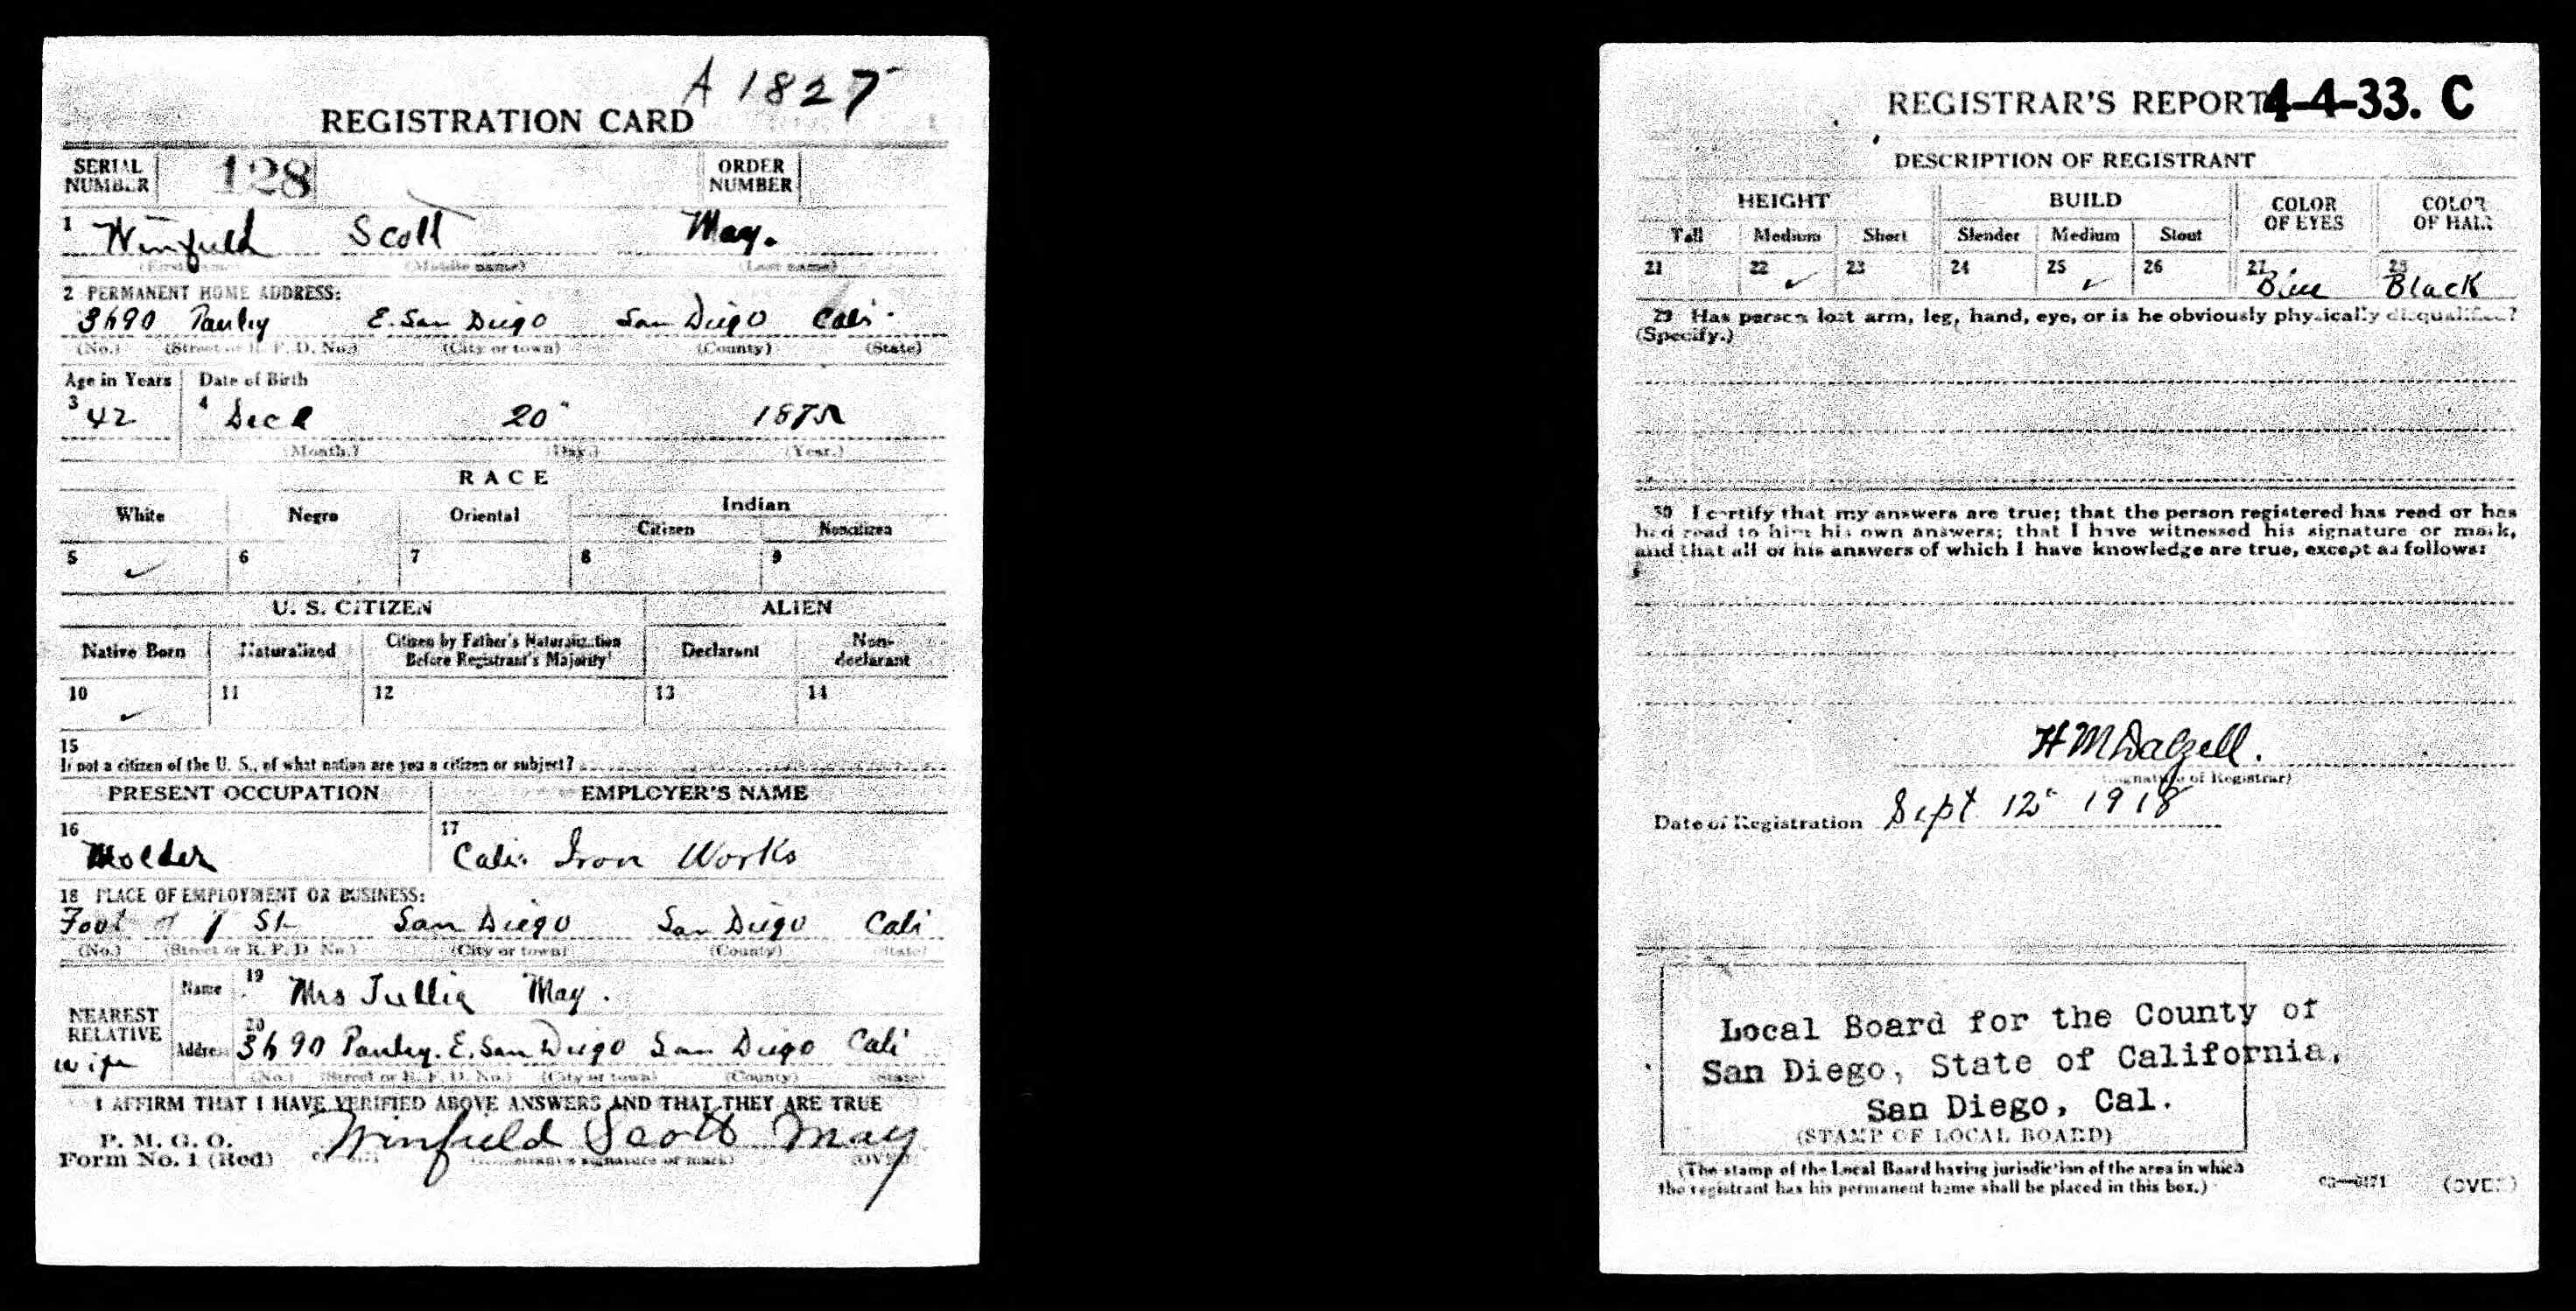 A 1827
REGISTRATION CARD
SERIAL NUMBER 128 ORDER NUMBER
1 Winfield Scott May.
(First name) (Middle name) (Last name)
2 PERMANENT HOME ADDRESS:
3690 Pauley E. San Diego San Diego Cali.
(No.) (Street or R. F. D. No.) (City or town) (County) (State)
Age in Years Date of Birth
3 42 4 Dec 20" 1875
(Month.) (Day.) (Year.)
RACE
White Negro Oriental Indian
Citizen Noncitizen
5 ✓ 6 7 8 9
U. S. CITIZEN ALIEN
Native Born Naturalized Citizen by Father's Naturalization Before Registrant's Majority Declarant Non-declarant
10 ✓ 11 12 13 14
15
If not a citizen of the U. S., of what nation are you a citizen or subject?
PRESENT OCCUPATION EMPLOYER'S NAME
16 Molder 17 Cali. Iron Works
18 PLACE OF EMPLOYMENT OR BUSINESS:
Foot of St San Diego San Diego Cali
(No.) (Street or R. F. D. No.) (City or town) (County) (State)
NEAREST RELATIVE wife
Name 19 Mrs Jullia May.
Address 20 3690 Pauley. E. San Diego San Diego Cali
(No.) (Street or R. F. D. No.) (City or town) (County) (State)
I AFFIRM THAT I HAVE VERIFIED ABOVE ANSWERS AND THAT THEY ARE TRUE
P. M. G. O.
Form No. 1 (Red) Winfield Scott May
(Registrant's signature or mark) (OVER)
REGISTRAR'S REPORT 4-4-33. C
DESCRIPTION OF REGISTRANT
HEIGHT BUILD COLOR OF EYES COLOR OF HAIR
Tall Medium Short Slender Medium Stout
21 22 ✓ 23 24 25 ✓ 26 27 Blue 28 Black
29 Has person lost arm, leg, hand, eye, or is he obviously physically disqualified?
(Specify.)
30 I certify that my answers are true; that the person registered has read or has
had read to him his own answers; that I have witnessed his signature or mark,
and that all of his answers of which I have knowledge are true, except as follows:
H M Dalzell.
(Signature of Registrar)
Date of Registration Sept 12" 1918
Local Board for the County of
San Diego, State of California,
San Diego, Cal.
(STAMP OF LOCAL BOARD)
(The stamp of the Local Board having jurisdiction of the area in which
the registrant has his permanent home shall be placed in this box.)
03—6171 (OVER)